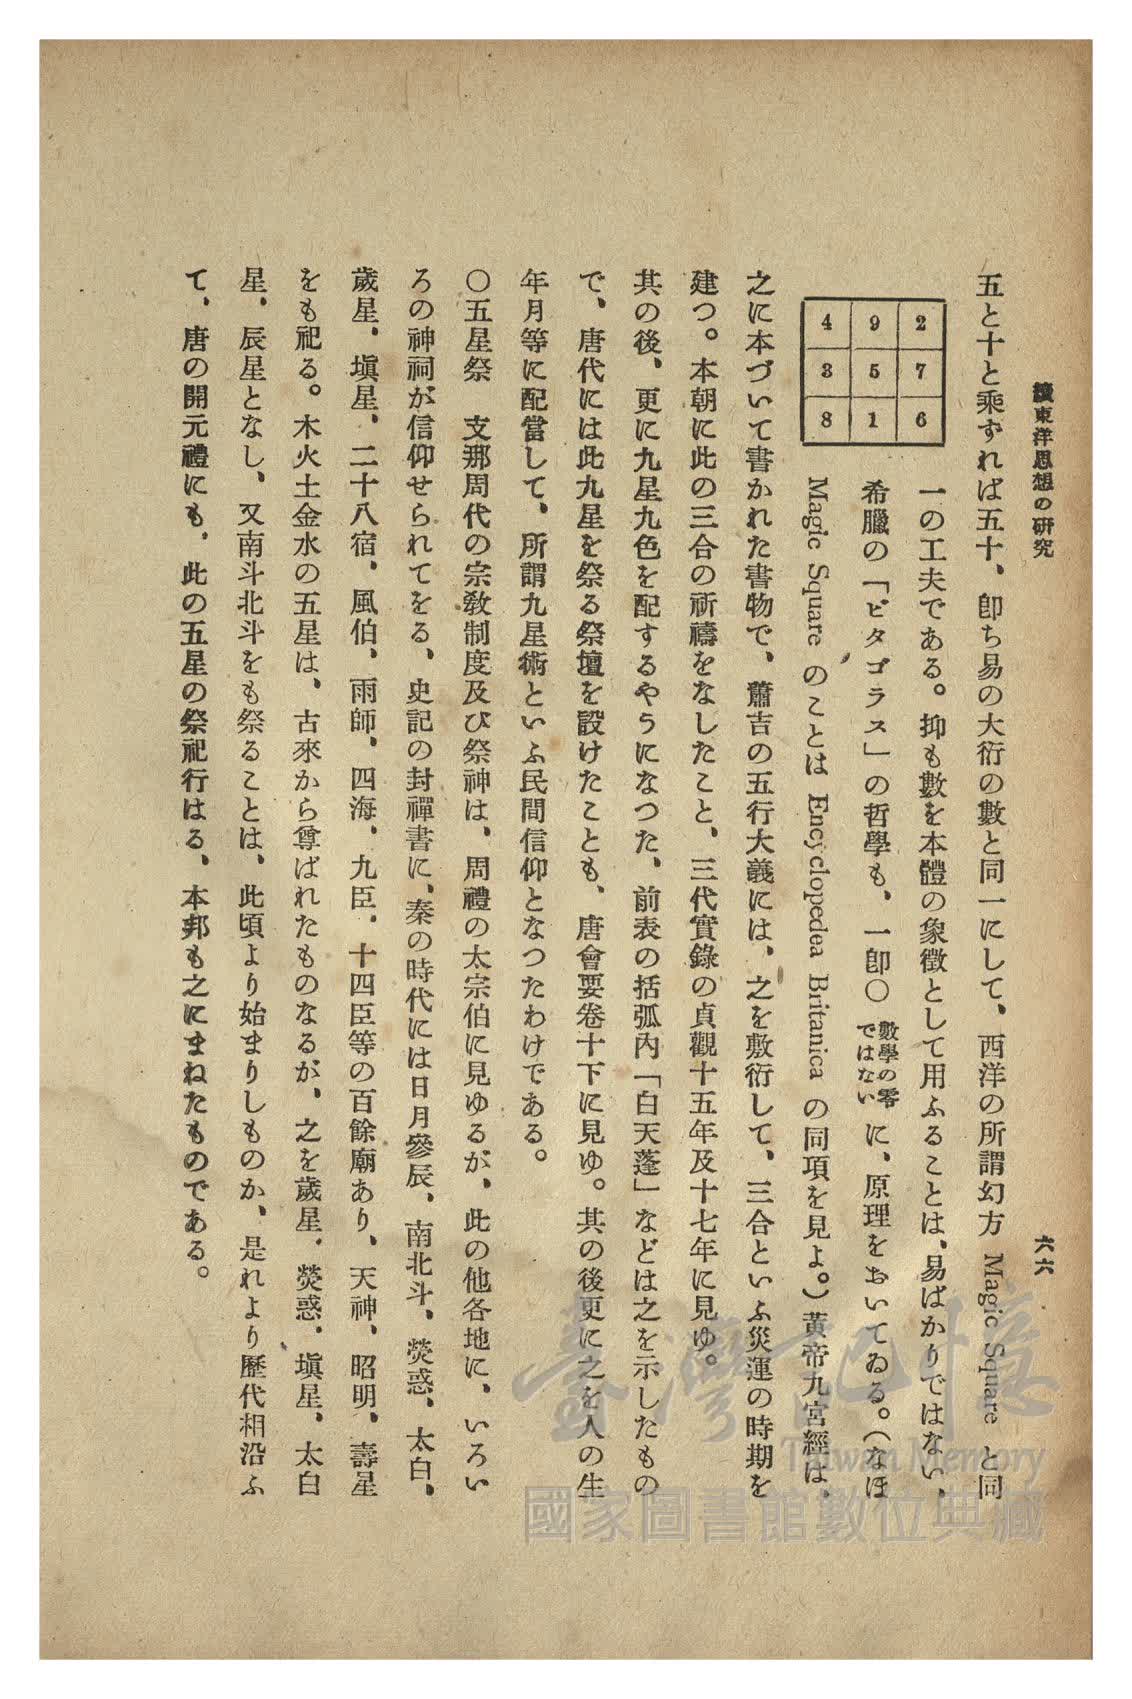 續東洋思想の研究
六六
五と十と乘ずれば五十、卽ち易の大衍の數と同一にして、西洋の所謂幻方 Magic Square と同
一の工夫である。抑も數を本體の象徵として用ふることは、易ばかりではない、
希臘の「ピタゴラス」の哲學も、一卽〇數學の零ではないに、原理をおいてゐる。（なほ
Magic Square のことは Encyclopedea Britanica の同項を見よ。）黃帝九宮經は、
4 9 2
3 5 7
8 1 6
之に本づいて書かれた書物で、蕭吉の五行大義には、之を敷衍して、三合といふ災運の時期を
建つ。本朝に此の三合の祈禱をなしたこと、三代實錄の貞觀十五年及十七年に見ゆ。
其の後、更に九星九色を配するやうになつた、前表の括弧內「白天蓬」などは之を示したもの
で、唐代には此九星を祭る祭壇を設けたことも、唐會要卷十下に見ゆ。其の後更に之を人の生
年月等に配當して、所謂九星術といふ民間信仰となつたわけである。
〇五星祭　支那周代の宗敎制度及び祭神は、周禮の太宗伯に見ゆるが、此の他各地に、いろい
ろの神祠が信仰せられてをる、史記の封禪書に、秦の時代には日月參辰、南北斗、熒惑、太白、
歲星、塡星、二十八宿、風伯、雨師、四海、九臣、十四臣等の百餘廟あり、天神、昭明、壽星
をも祀る。木火土金水の五星は、古來から尊ばれたものなるが、之を歲星、熒惑、塡星、太白
星、辰星となし、又南斗北斗をも祭ることは、此頃より始まりしものか、是れより歷代相沿ふ
て、唐の開元禮にも、此の五星の祭祀行はる、本邦も之にまねたものである。
臺灣記憶
Taiwan Memory
國家圖書館數位典藏